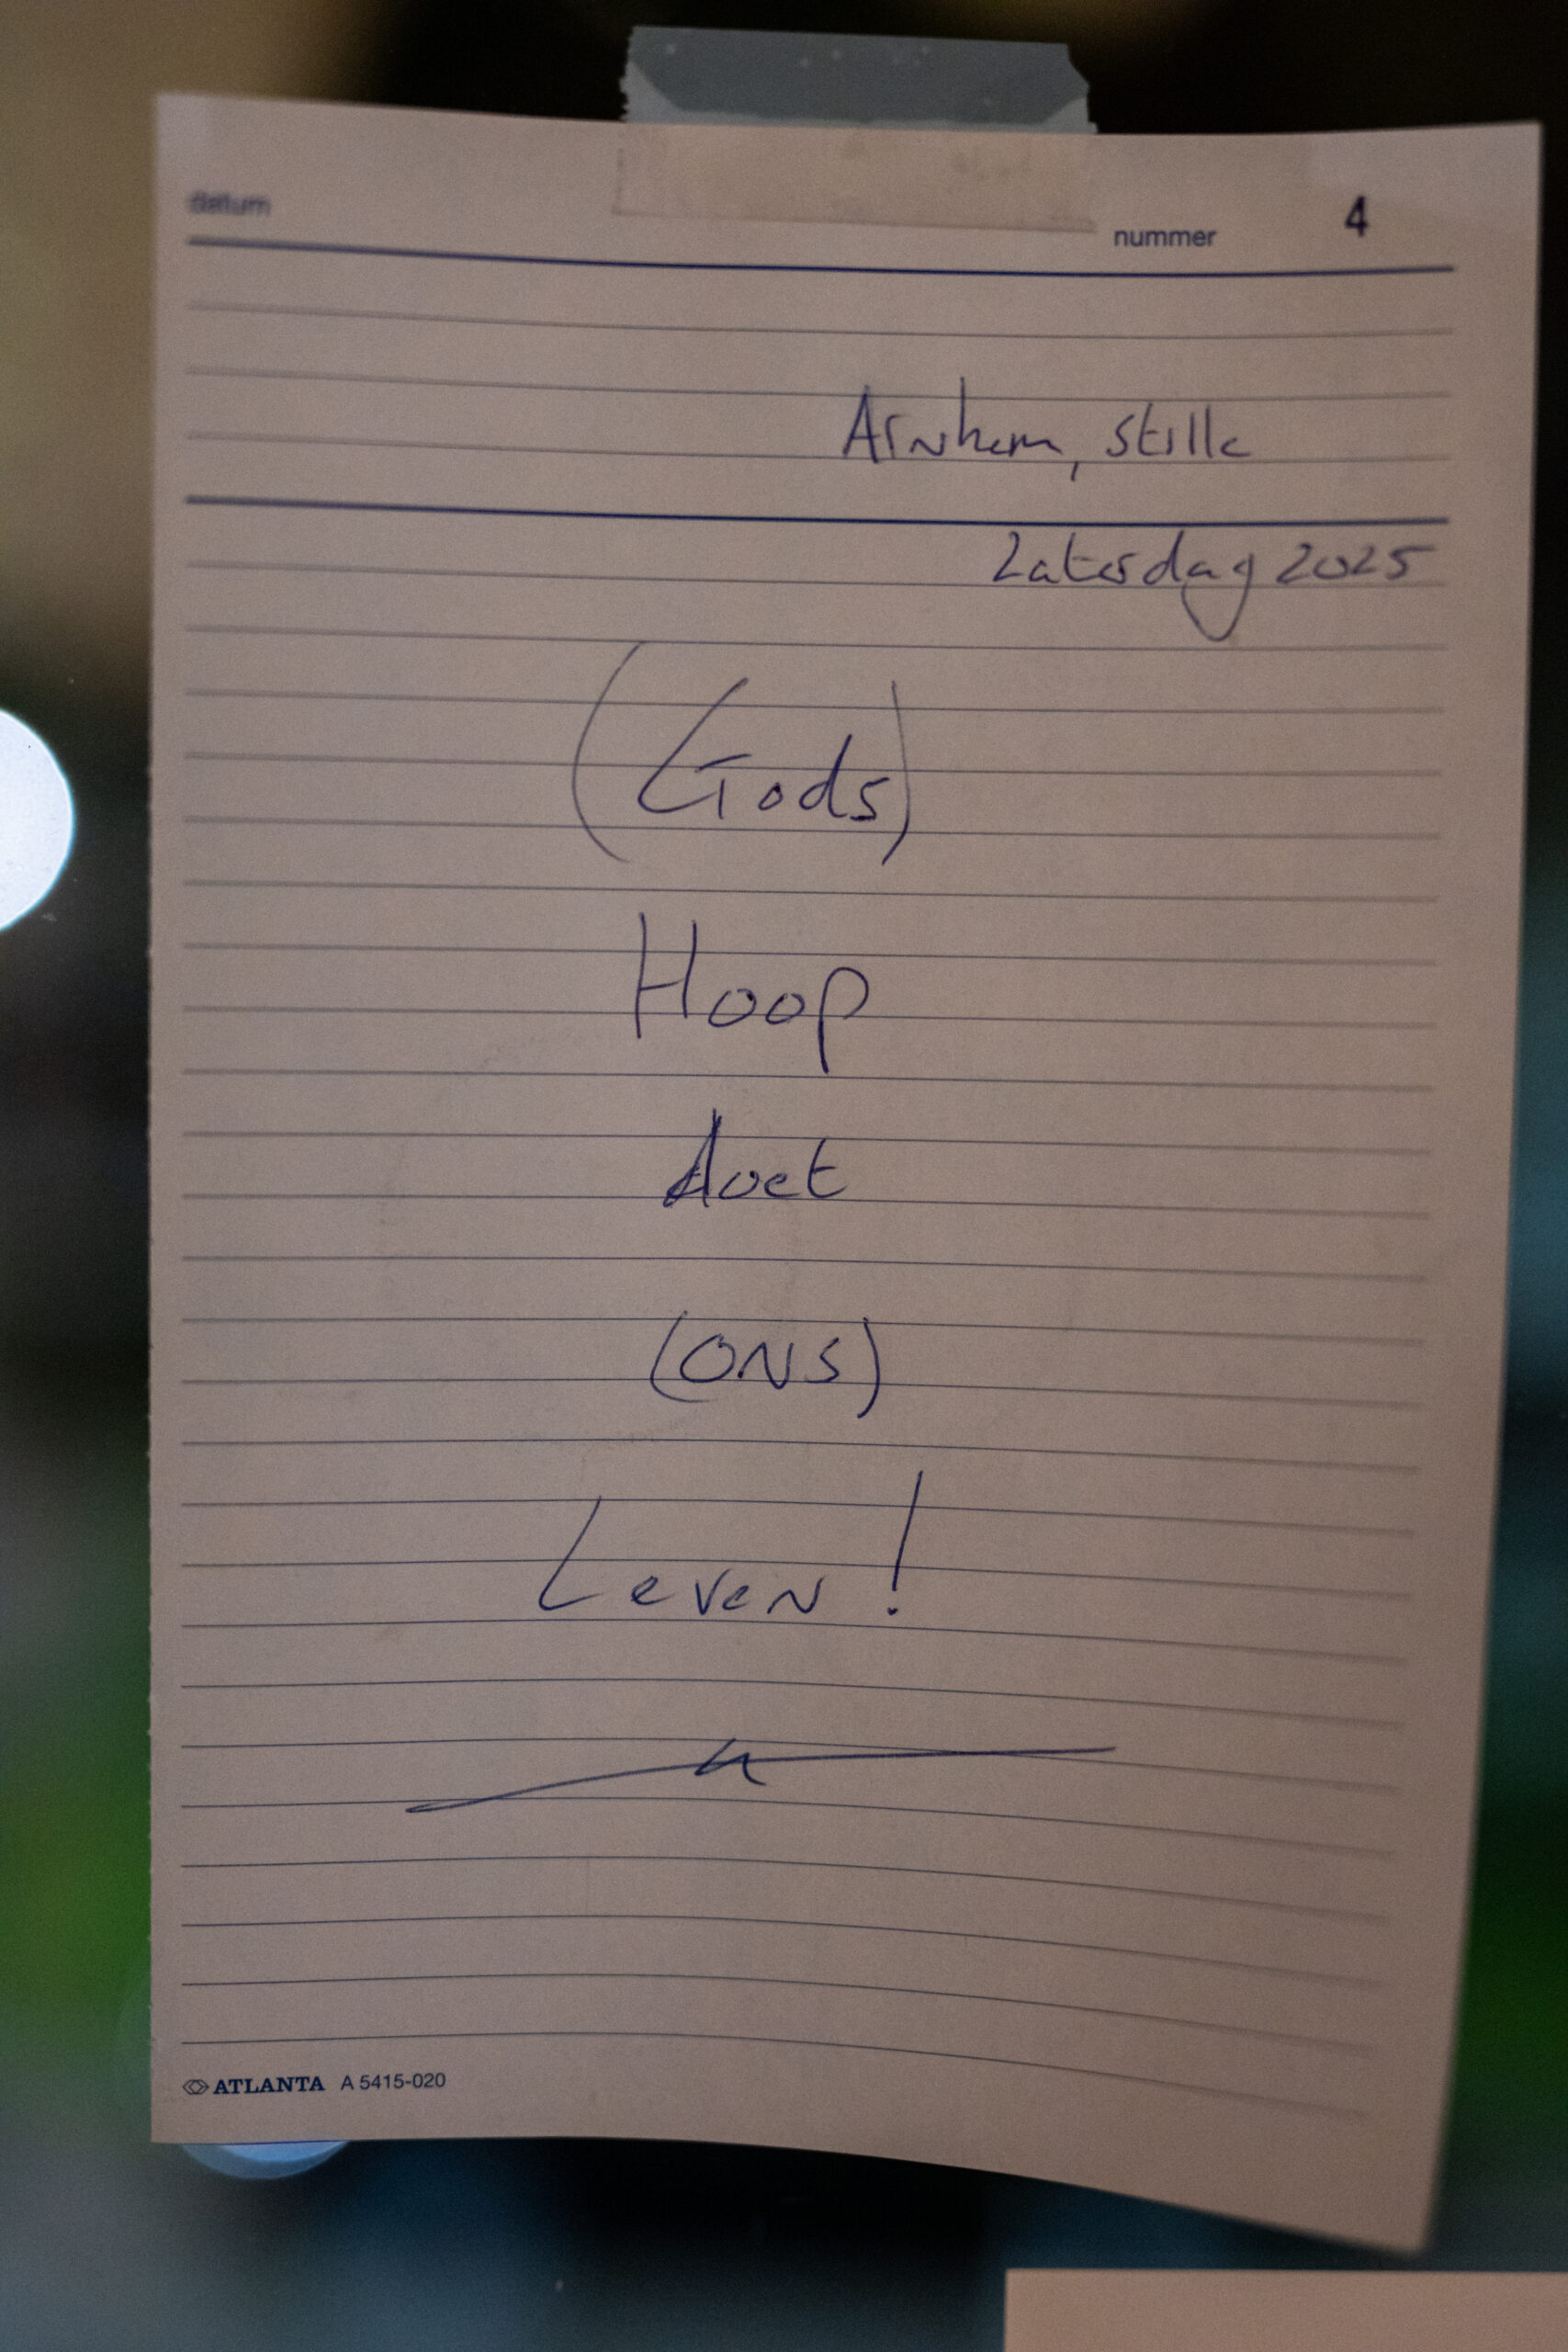 datum
nummer 4
Arnhem, Stille
Zaterdag 2025
(Gods)
Hoop
doet
(ONS)
Leven!
ATLANTA A 5415-020